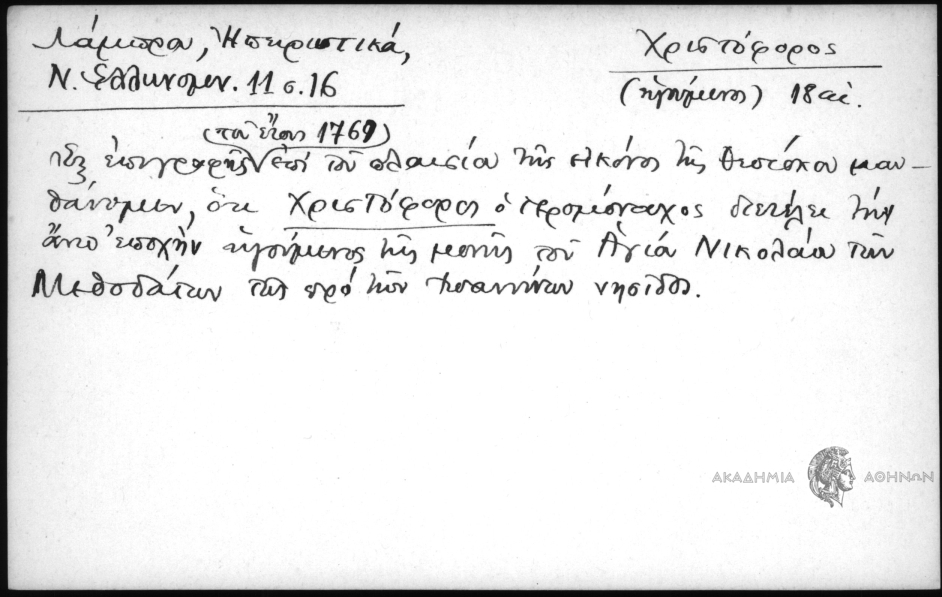 Λάμπρου, Ἠπειρωτικά,
Ν. Ἑλληνομν. 11 σ. 16
Χριστόφορος
(ἡγούμενος) 18 αἰ.
(τοῦ ἔτους 1769)
Ἐξ ἐπιγραφῆς ἐπὶ τοῦ πλαισίου τῆς εἰκόνος τῆς Θεοτόκου μαν-
θάνομεν, ὅτι Χριστόφορος ὁ ἱερομόναχος διετέλει τὴν
ἐποχὴν ἡγούμενος τῆς μονῆς τοῦ Ἁγίου Νικολάου τῶν
Μεθοδάτων τῆς πρὸ τῶν Ἰωαννίνων νησίδος.
ΑΚΑΔΗΜΙΑ ΑΘΗΝΩΝ